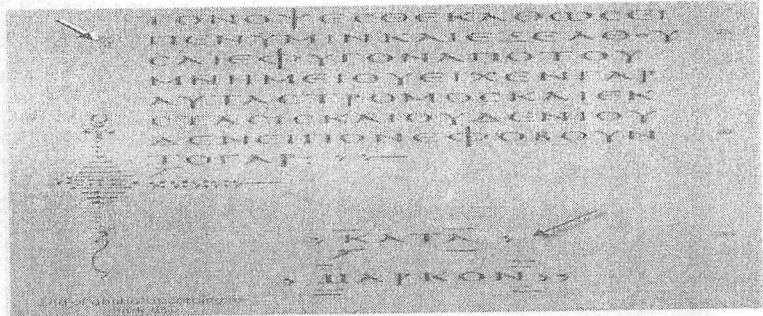 ΤΟΝΟΨΕϹΘΕΚΑΘΩϹΕΙ
ΠΕΝΥΜΙΝΚΑΙΕΞΕΛΘΟΥ
ϹΑΙΕΦΥΓΟΝΑΠΟΤΟΥ
ΜΝΗΜΕΙΟΥΕΙΧΕΝΓΑΡ
ΑΥΤΑϹΤΡΟΜΟϹΚΑΙΕΚ
ϹΤΑϹΙϹΚΑΙΟΥΔΕΝΙΟΥ
ΔΕΝΕΙΠΟΝΕΦΟΒΟΥΝ
ΤΟΓΑΡ:
ΚΑΤΑ
ΜΑΡΚΟΝ